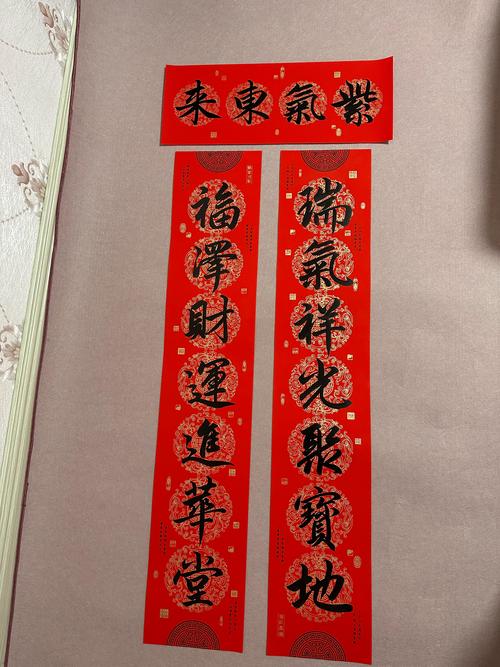 紫氣東来
瑞氣祥光聚寶地
福澤財運進華堂